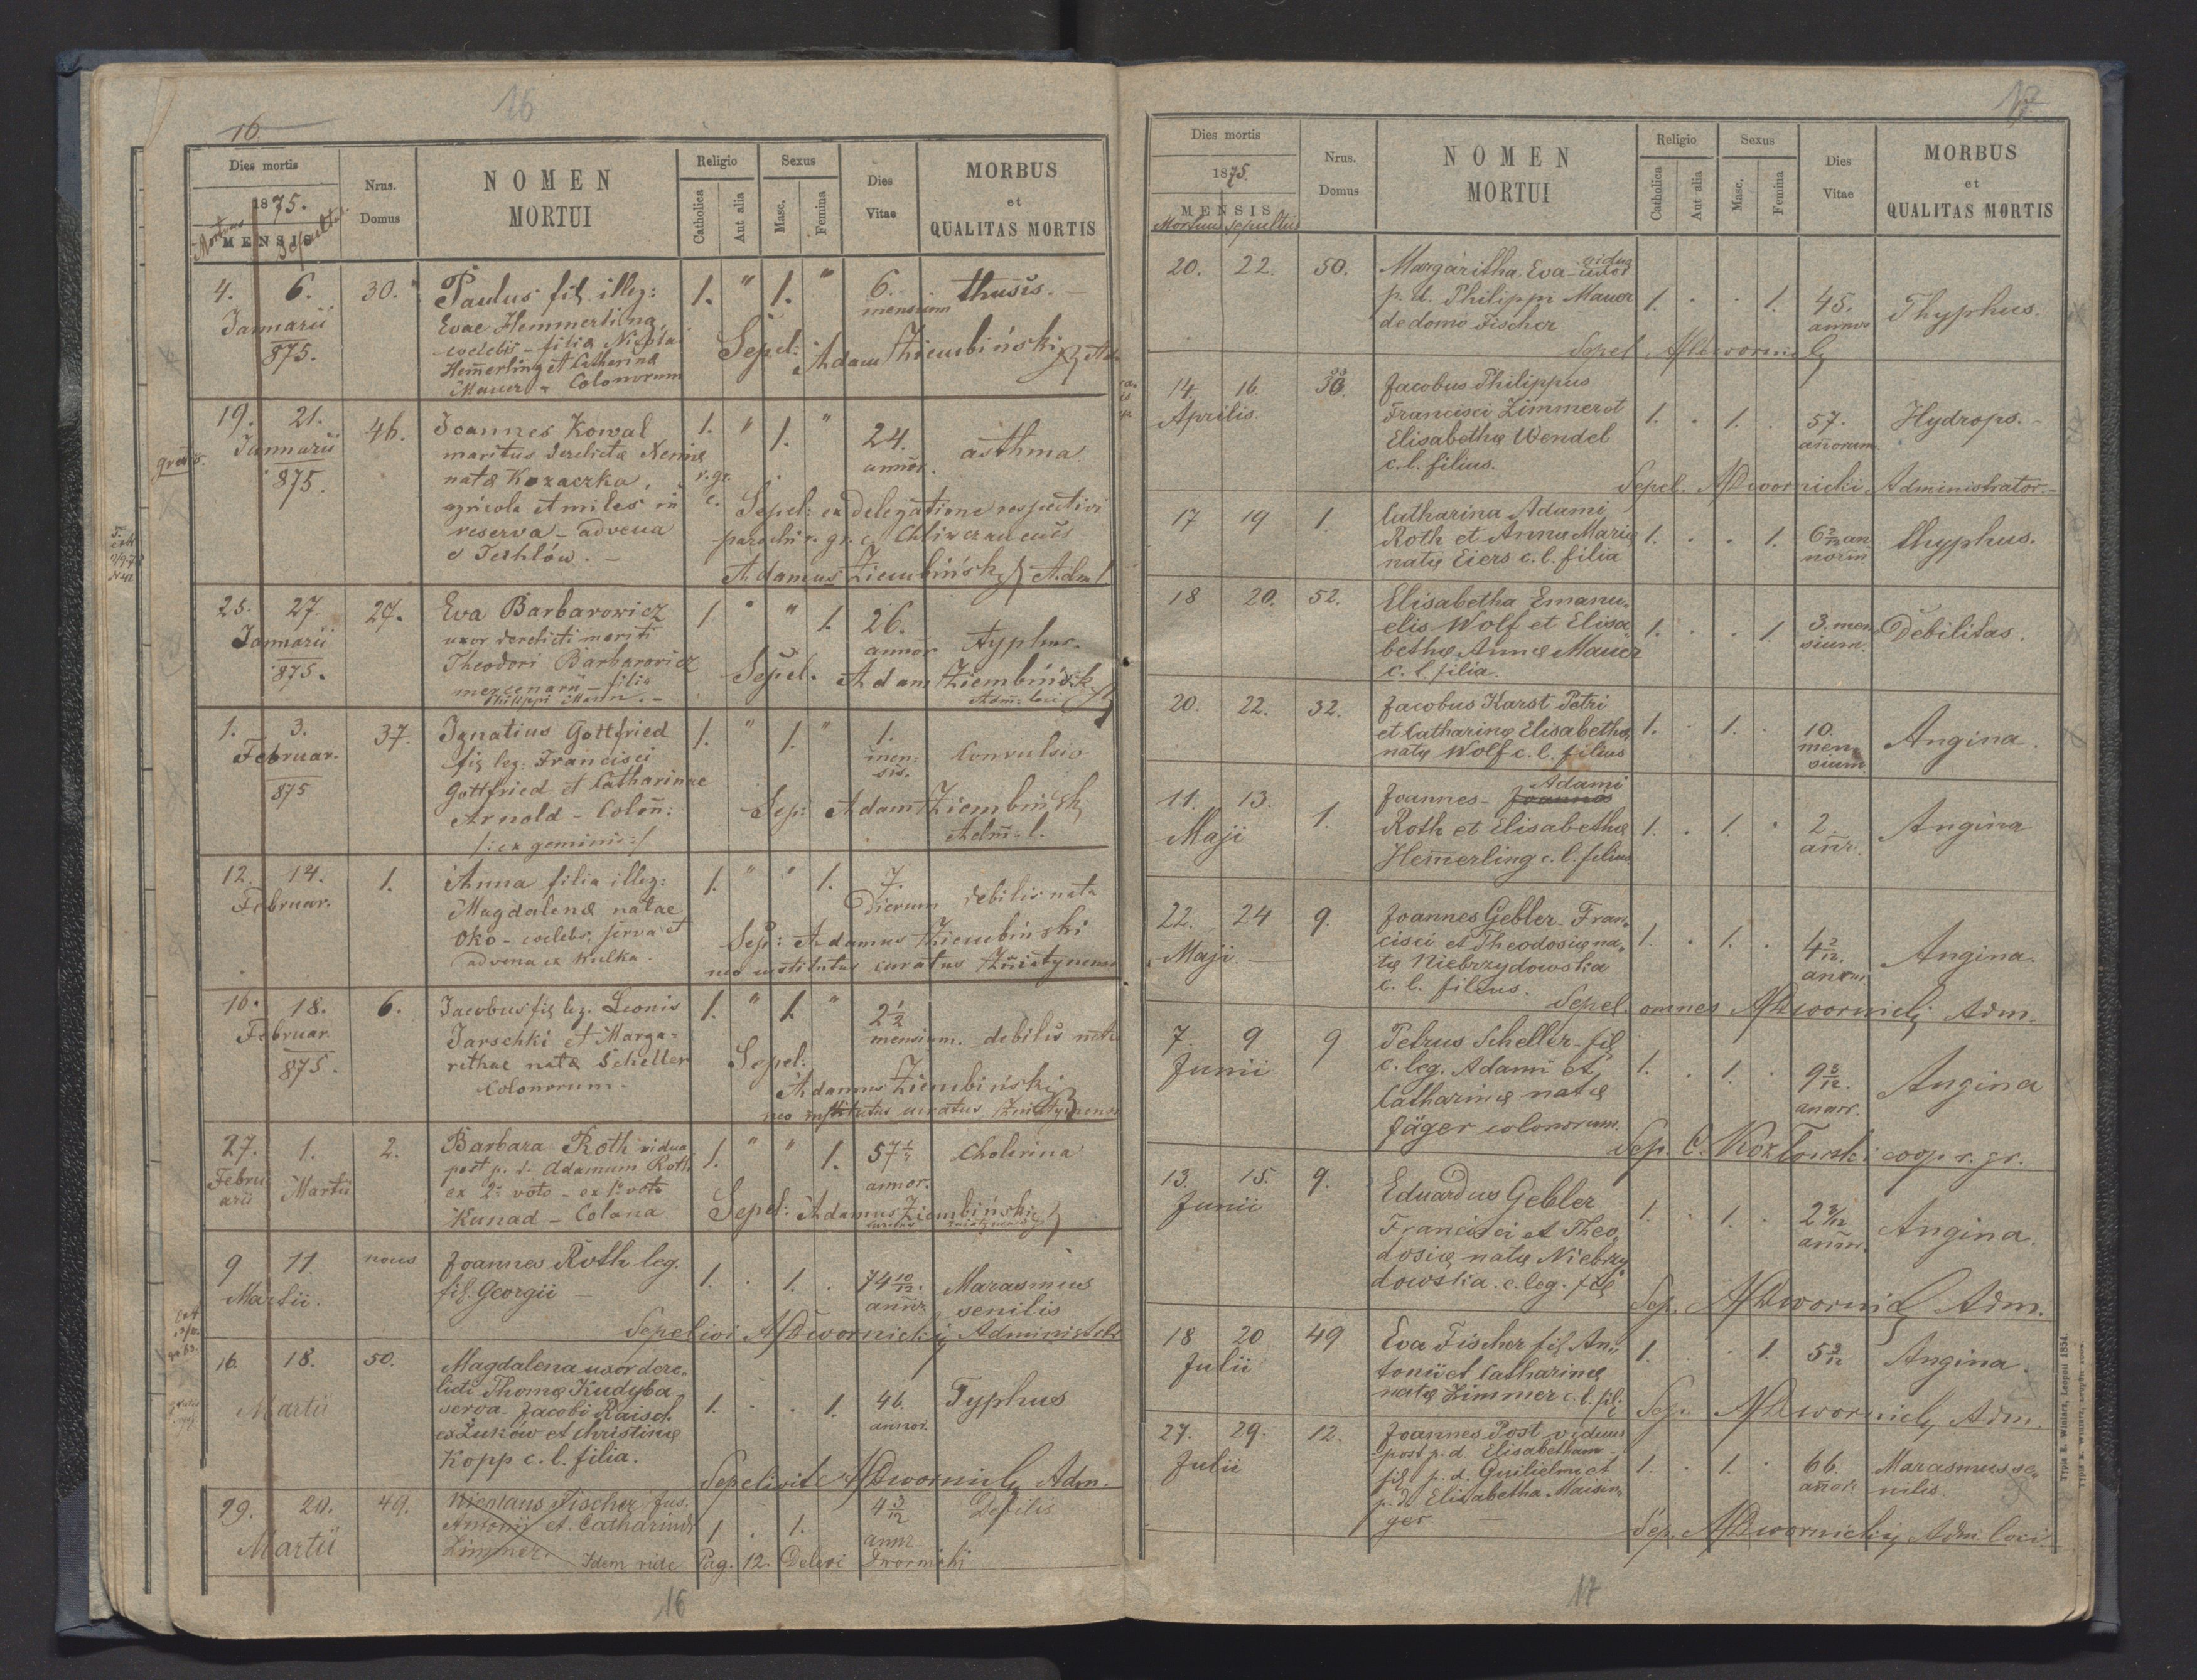 16
16.
Dies mortis
1875.
MENSIS
Mortuus Sepultus
Nrus. Domus
NOMEN MORTUI
Religio
Catholica
Aut alia
Sexus
Masc.
Femina
Dies Vitae
MORBUS et QUALITAS MORTIS
4. 6. 30. Paulus fil. illeg: 1. " 1. " 6. thusis.
Januarii Evae Hemmerling mensium
875. coelebs - filia Nicolai Sepel: Adam Ziembiński
Hem̅erling et Catharinæ
Mauer - Colonorum
19. 21. 46. Joannes Kowal 1. " 1. " 24. asthma.
Januarii maritus derelictæ Xeniæ annor.
gratis.
875. natæ Kozaczka, r. gr. c.
agricola et miles in Sepel: ex delegatione respectivi
reserva - advena parochi r. gr. c.
e Tekhlów. - Adamus Ziembiński Adm
25. 27. 29. Eva Barbarowicz 1 " " 1. 26. typhus.
Januarii uxor derelicti mariti annor
875. Theodori Barbarowicz Sepel. Adam Ziembiński
mercenarii - filia Adm: loci
Philippi Mann. -
1. 3. 37. Ignatius Gottfried 1. " 1. " 1. Convulsio
Februar. fil leg: Francisci mensis.
875 Gottfried et Catharinae Sep: Adam Ziembiński
Arnold - Colon̅: Adm̅: l.
/: ex geminis :/
12. 14. 1. Anna filia illeg: 1. " " 1. 7. debilis nata
Februar. Magdalenæ natae Dierum
Oko - coelebs, serva et Sep: Adamus Ziembinski
advena ex Kulka. neo institutus curatus
16. 18. 6. Jacobus fil leg. Leonis 1. " 1. " 2½ debilis nat
Februar. Jarschki et Marga- mensium.
875. rithae natæ Scheller Sepel:
Colonorum - Adamus Ziembiński
neo institutus curatus
27. 1. 2. Barbara Roth vidua 1. " " 1. 57 Cholerina
Februarii Martii post p. d. Adamum Roth annor.
ex 2º voto - ex 1º voto
Kunad - Colona Sepel: Adamus Ziembiński
9 11. nous Joannes Roth leg. 1. . 1. . 74 10/12 Marasmus
Martii. fil. Georgii - annor. senilis
Sepelivi ADwornicki Administrator
16. 18. 50. Magdalena uxor dere-
licti Thomæ Kudyba
Martii serva - Jacobi Raisch 1. . . 1. 46. Typhus
ex Żuków et Christinæ annor.
Kopp c. l. filia.
Sepelivit ADwornicki Adm.
19. 20. 49. Nicolaus Fischer 4 3/12 Debilis
Martii Antonii et Catharinæ 1 . 1. annor
Zimmer. Idem vide Pag. 12. Delevi Dwornicki
16
17.
Dies mortis
1875.
MENSIS
Mortuus Sepultus
Nrus. Domus
NOMEN MORTUI
Religio
Catholica
Aut alia
Sexus
Masc.
Femina
Dies Vitae
MORBUS et QUALITAS MORTIS
20. 22. 50. Margaritha Eva - vidua uxor
p. d. Philippi Mauer 1. . . 1. 45. Thyphus.
de domo Fischer annor
Sepel ADwornicki
14. 16 33. Jacobus Philippus
Aprilis. Francisci Zimmer et 1. . 1. . 57. Hydrops. -
Elisabethæ Wendel an̅orum
c. l. filius.
Sepel. ADwornicki Administrator. -
17 19 1. Catharina Adami
Roth et Annæ Mariæ 1. . . 1. 6 2/12 an thyphus.
natæ Eiers c. l. filia norum̅
18 20. 52. Elisabetha Emanu-
elis Wolf et Elisa- 1. . . 1. 3. men Debilitas.
bethæ Annæ Mauer sium.
c. l. filia.
20. 22. 32. Jacobus Karst Petri
et Catharinæ Elisabethæ 1. . 1. . 10. Angina.
natæ Wolf c. l. filius mensium
11. 13. 1. Joannes - Adami Joannes
Maji Roth et Elisabethæ 1. . 1. . 2 Angina
Hem̅erling c. l. filius an̅r.
22. 24 9. Joannes Gebler - Fran-
cisci et Theodosiæ na- 1. . 1. . 4 2/12. Angina.
Maji. - tæ Niebrzydowska annr.
c. l. filius.
Sepel. omnes ADwornicki Adm.
7 9 9 Petrus Scheller - fil
Junii c. leg. Adami et 1. . 1. . 9 3/12. Angina
Catharinæ natæ annor.
Jäger colonorum.
Sep. C. Kozłowski coop. r. gr.
13. 15. 9. Eduardus Gebler
Junii Francisci et Theo- 1. . 1. . 2 3/12 Angina.
dosiæ natæ Niebrzy annr.
dowska. c. leg. fil
Sep. ADwornicki Adm.
18 20 49 Eva Fischer fil An-
Julii tonii et Catharinæ 1. . . 1. 5 2/12 Angina.
natæ Zimmer c. l. fil:
Sep. ADwornicki Adm.
27. 29. 12. Joannes Post viduus
post p. d. Elisabetham -
Julii fil p. d. Guilielmi et 1. . 1. . 66. Marasmus se-
p. d. Elisabetha Maisin- an̅or. nilis.
ger -
Sep. ADwornicki Adm. loci.
17
Typis E. Winiarz, Leopoli 1854.